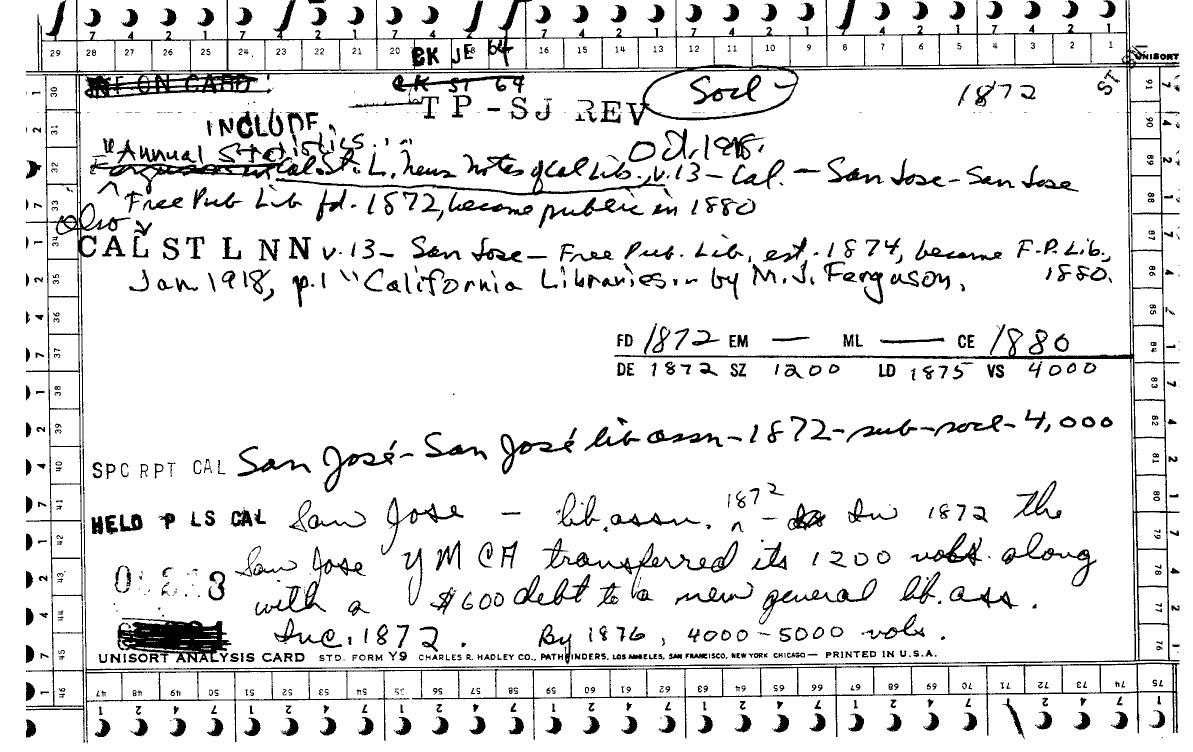 29 28 27 26 25 24 23 22 21 20 19 18 17 16 15 14 13 12 11 10 9 8 7 6 5 4 3 2 1
BK JE 64
UNISORT
INF ON CARD
CK ST 64
TP-SJ REV
Socl-
1872
INCLUDE
"Annual Statistics..."
Oct. 1918.
Ferguson in Cal. St. L. News Notes of Cal Lib., v. 13 - Cal. - San Jose - San Jose
Free Pub Lib fd. 1872, became public in 1880
also
CAL ST L NN v. 13 - San Jose - Free Pub. Lib, est. 1874, became F. P. Lib.,
Jan. 1918, p. 1 "California Libraries.. by M. J. Ferguson. 1880.
FD 1872 EM — ML — CE 1880
DE 1872 SZ 1200 LD 1875 VS 4000
SPC RPT CAL San José - San José lib assn - 1872 - sub - socl - 4,000
HELD P LS CAL San Jose - lib. assn. 1872 ^ - In 1872 the
San Jose YMCA transferred its 1200 vols. along
with a $600 debt to a new general lib. ass.
Inc. 1872. By 1876, 4000-5000 vols.
UNISORT ANALYSIS CARD STD. FORM Y9 CHARLES R. HADLEY CO., PATHFINDERS, LOS ANGELES, SAN FRANCISCO, NEW YORK CHICAGO — PRINTED IN U.S.A.
47 48 49 50 51 52 53 54 55 56 57 58 59 60 61 62 63 64 65 66 67 68 69 70 71 72 73 74 75